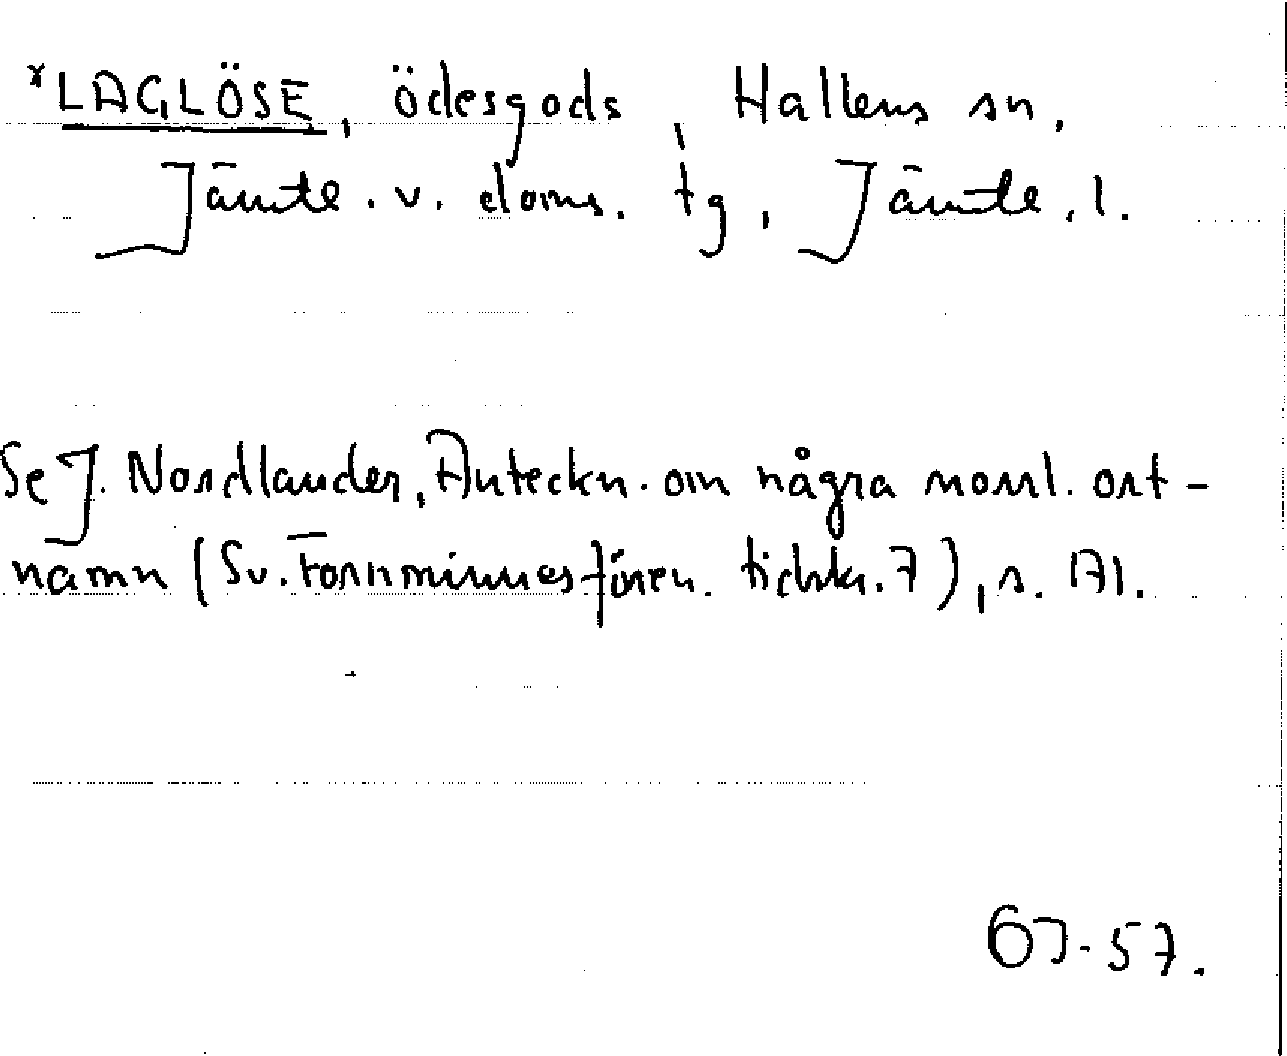 *LAGLÖSE, ödesgods, Hallens sn,
Jämtl. v. doms. tg, Jämtl. l.
Se J. Nordlander, Anteckn. om några norrl. ort-
namn (Sv. Fornminnesfören. tidskr. 7), s. 171.
GJ-57.